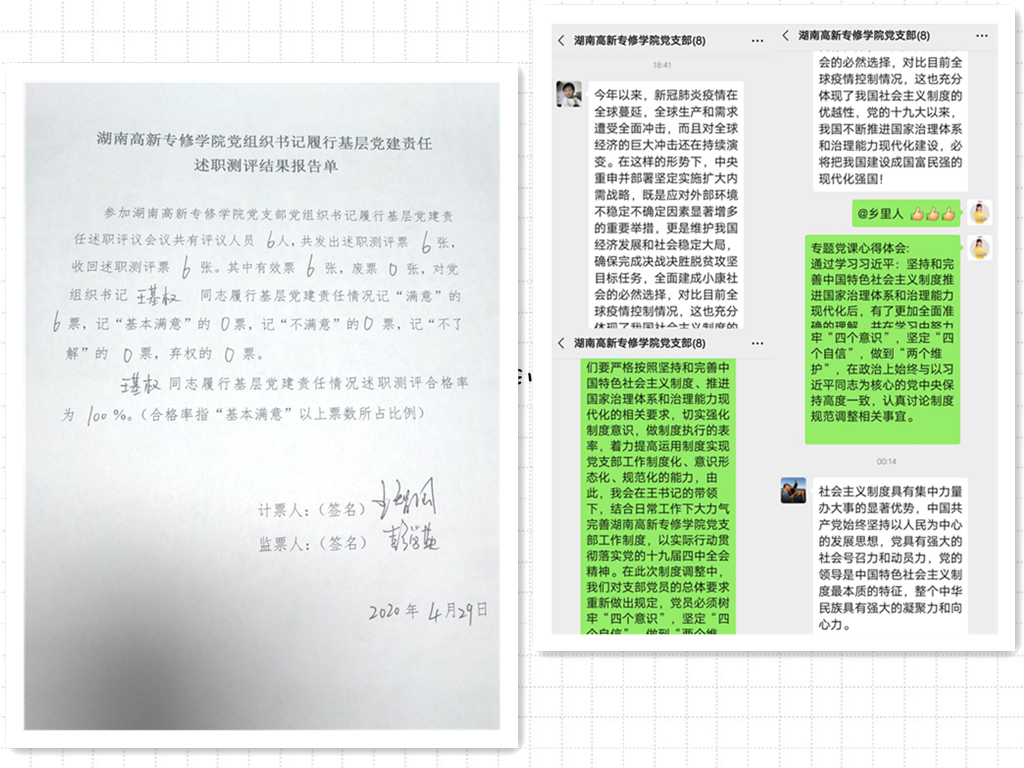 湖南高新专修学院党组织书记履行基层党建责任
述职测评结果报告单
参加湖南高新专修学院党支部党组织书记履行基层党建责
任述职评议会议共有评议人员 6人,共发出述职测评票 6 张,
收回述职测评票 6 张。其中有效票 6 张,废票 0 张,对党
组织书记 王基权 同志履行基层党建责任情况记“满意”的
6 票,记“基本满意”的 0票,记“不满意”的0 票,记“不了
解”的 0 票,弃权的 0 票。
王基权 同志履行基层党建责任情况述职测评合格率
为 100 %。(合格率指“基本满意”以上票数所占比例)
计票人:(签名)
监票人:(签名)
2020 年 4 月29日
湖南高新专修学院党支部(8)
18:41
今年以来,新冠肺炎疫情在
全球蔓延,全球生产和需求
遭受全面冲击,而且对全球
经济的巨大冲击还在持续演
变。在这样的形势下,中央
重申并部署坚定实施扩大内
需战略,既是应对外部环境
不稳定不确定因素显著增多
的重要举措,更是维护我国
经济发展和社会稳定大局,
确保完成决战决胜脱贫攻坚
目标任务,全面建成小康社
会的必然选择,对比目前全
球疫情控制情况,这也充分
体现了我国社会主义制度的
湖南高新专修学院党支部(8)
们要严格按照坚持和完善中
国特色社会主义制度、推进
国家治理体系和治理能力现
代化的相关要求,切实强化
制度意识,做制度执行的表
率,着力提高运用制度实现
党支部工作制度化、意识形
态化、规范化的能力,由
此,我会在王书记的带领
下,结合日常工作下大力气
完善湖南高新专修学院党支
部工作制度,以实际行动贯
彻落实党的十九届四中全会
精神。在此次制度调整中,
我们对支部党员的总体要求
重新做出规定,党员必须树
牢“四个意识”,坚定“四
个自信”,做到“两个维
湖南高新专修学院党支部(8)
会的必然选择,对比目前全
球疫情控制情况,这也充分
体现了我国社会主义制度的
优越性,党的十九大以来,
我国不断推进国家治理体系
和治理能力现代化建设,必
将把我国建设成国富民强的
现代化强国!
@乡里人 👍👍👍
专题党课心得体会:
通过学习习近平:坚持和完
善中国特色社会主义制度推
进国家治理体系和治理能力
现代化后,有了更加全面准
确的理解,并在学习中努力
牢“四个意识”,坚定“四
个自信”,做到“两个维
护”,在政治上始终与以习
近平同志为核心的党中央保
持高度一致,认真讨论制度
规范调整相关事宜。
00:14
社会主义制度具有集中力量
办大事的显著优势,中国共
产党始终坚持以人民为中心
的发展思想,党具有强大的
社会号召力和动员力,党的
领导是中国特色社会主义制
度最本质的特征,整个中华
民族具有强大的凝聚力和向
心力。